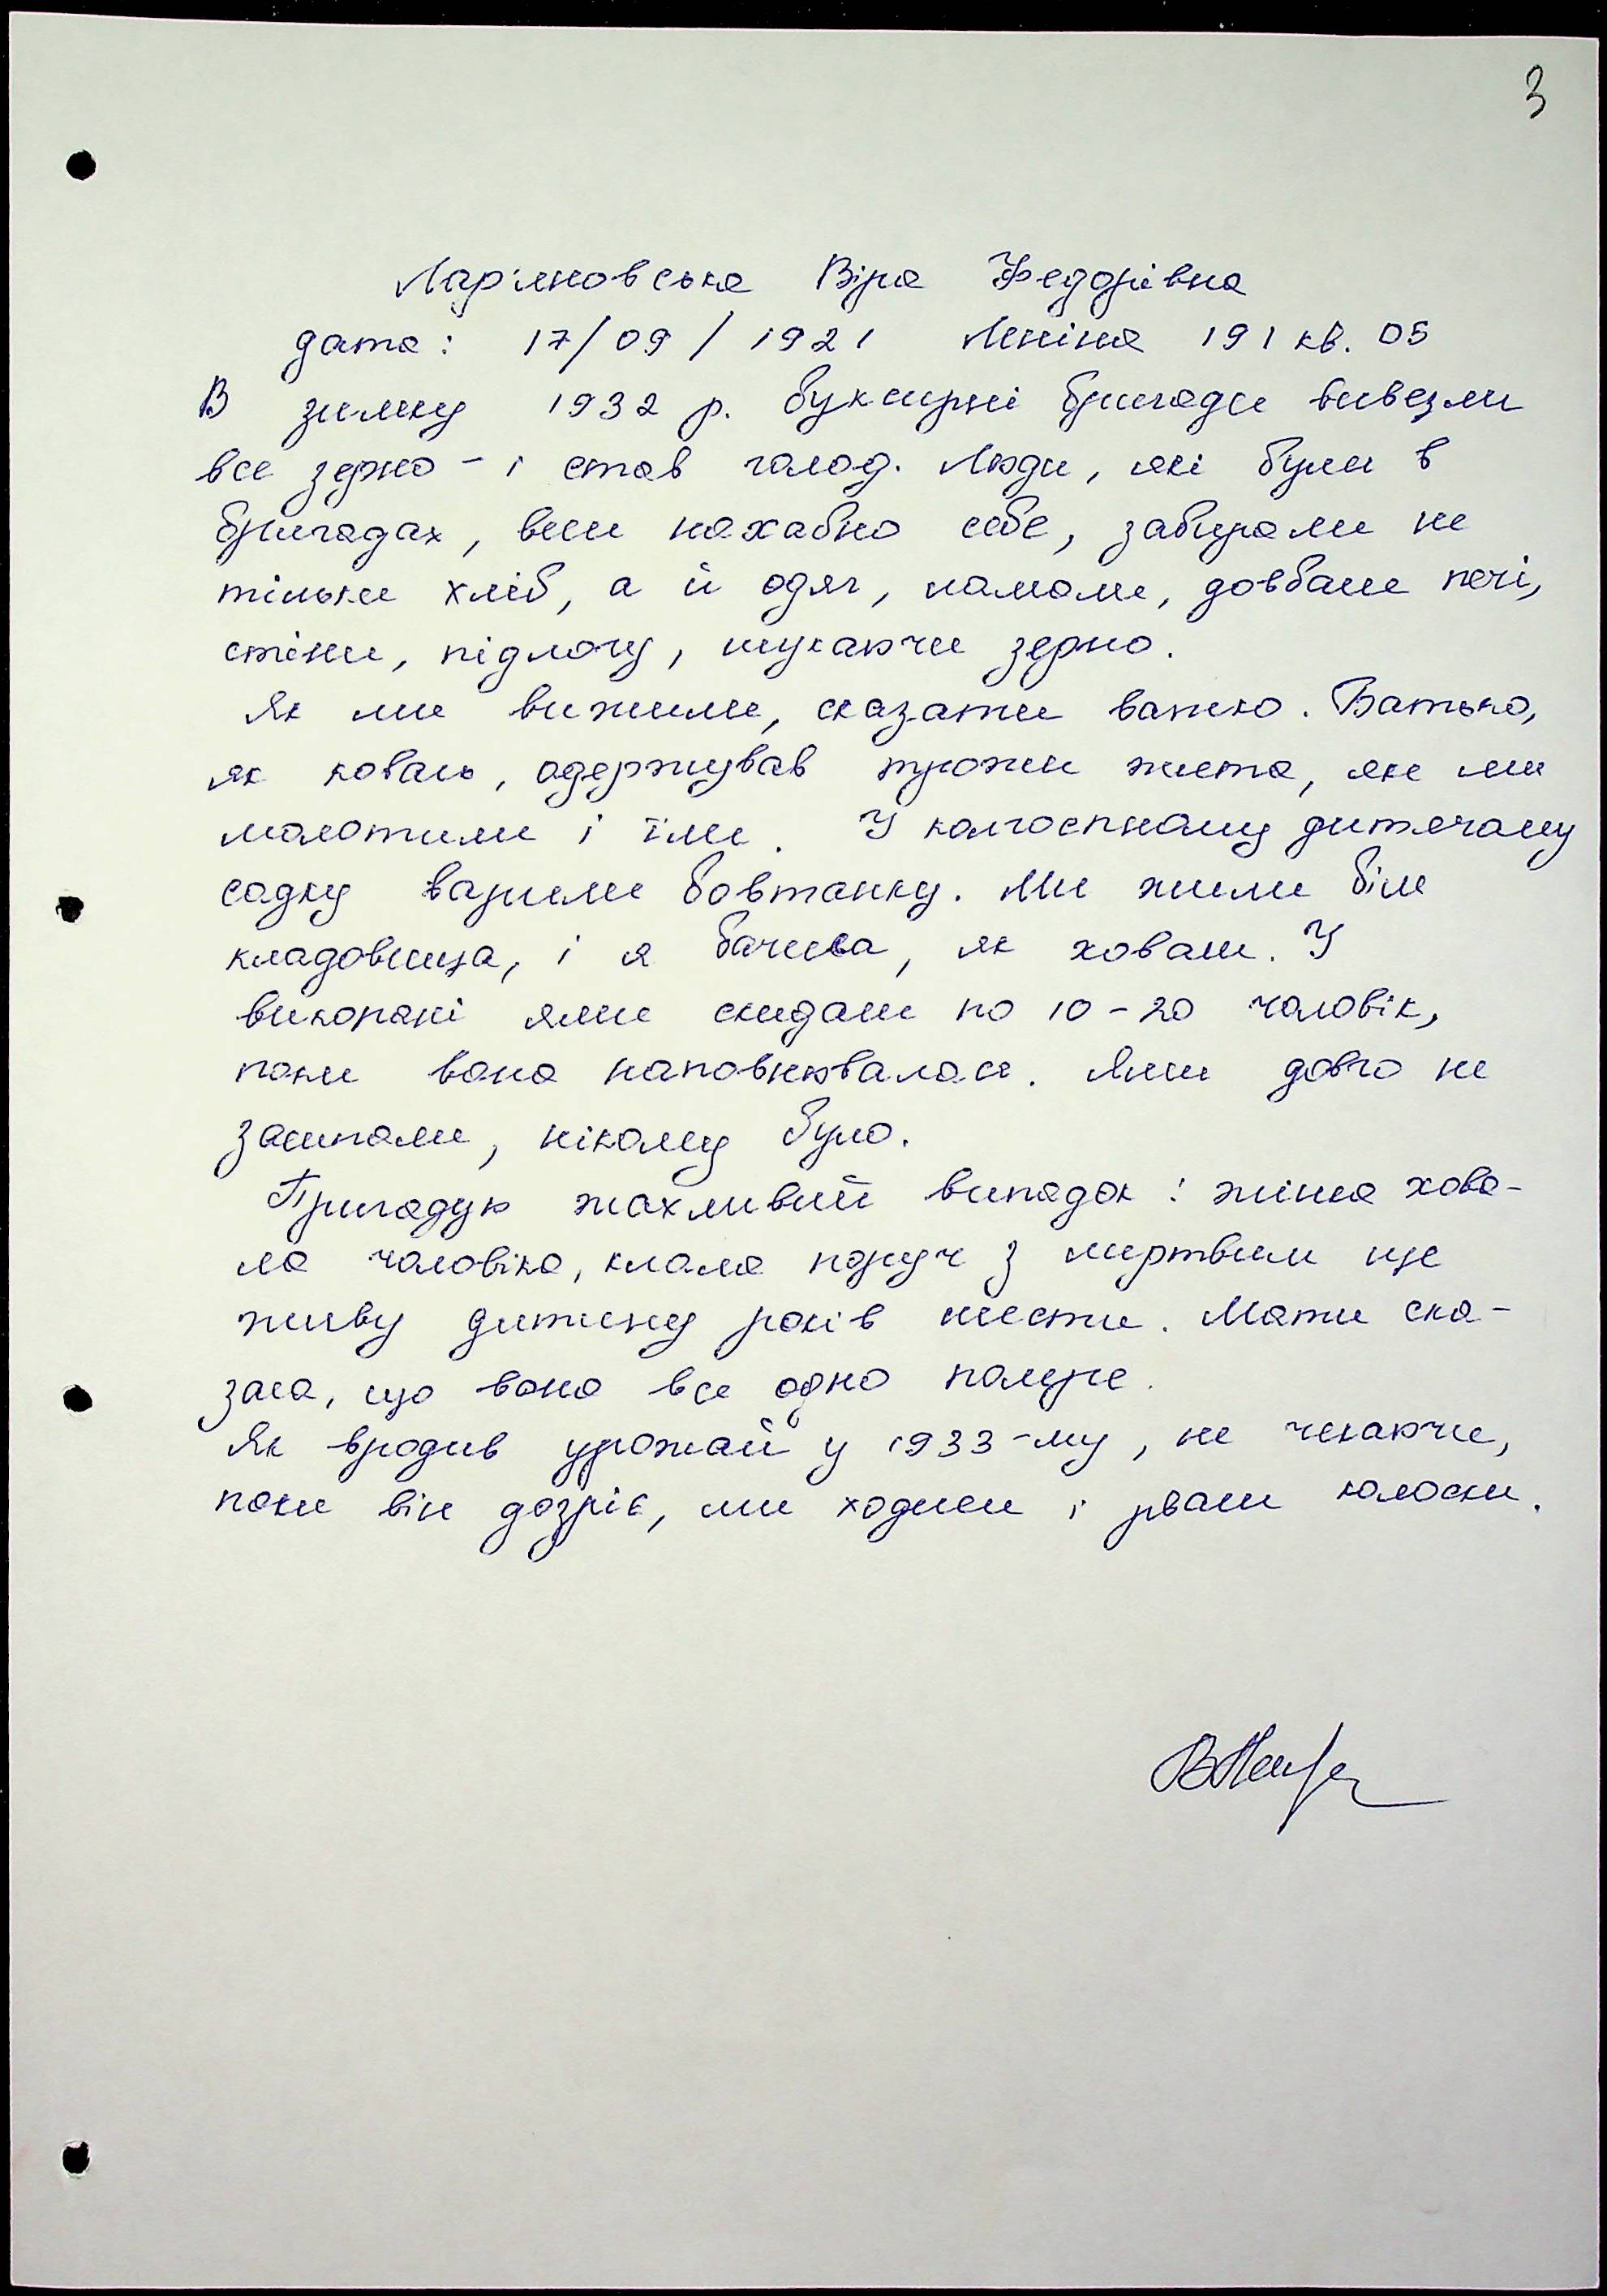 3
Лар'яновська Віра Федорівна
дата: 17/09/1921 Леніна 191 кв. 05
В зимку 1932 р. буксирні бригади вивезли
все зерно - і став голод. Люди, які були в
бригадах, вели нахабно себе, забирали не
тільки хліб, а й одяг, ламали, довбали печі,
стіни, підлогу, шукаючи зерно.
Як ми вижили, сказати важко. Батько,
як коваль, одержував трохи жита, яке ми
молотили і їли. У колгоспному дитячому
садку варили бовтанку. Ми жили біля
кладовища, і я бачила, як ховали. У
викопані ями скидали по 10-20 чоловік,
поки вона наповнювалася. Ями довго не
засипали, нікому було.
Пригадую жахливий випадок: жінка хова-
ла чоловіка, клала поруч з мертвим ще
живу дитину років шести. Мати ска-
зала, що вона все одно помре.
Як вродив урожай у 1933-му, не чекаючи,
поки він дозріє, ми ходили і рвали колоски.